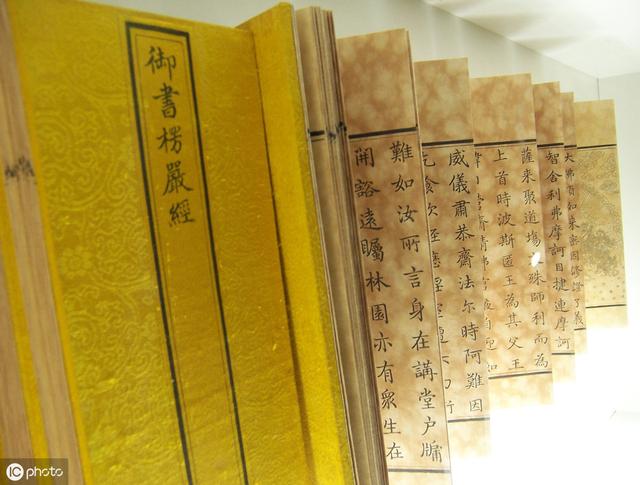 御書楞嚴經
大佛頂如來密因修證了義
智舍利弗摩訶目揵連摩訶
薩來聚道塲殊師利而為
上首時波斯匿王為其父王
威儀肅恭齋法尔時阿難因
難如汝所言身在講堂户牖
開豁遠矚林園亦有衆生在
IC photo